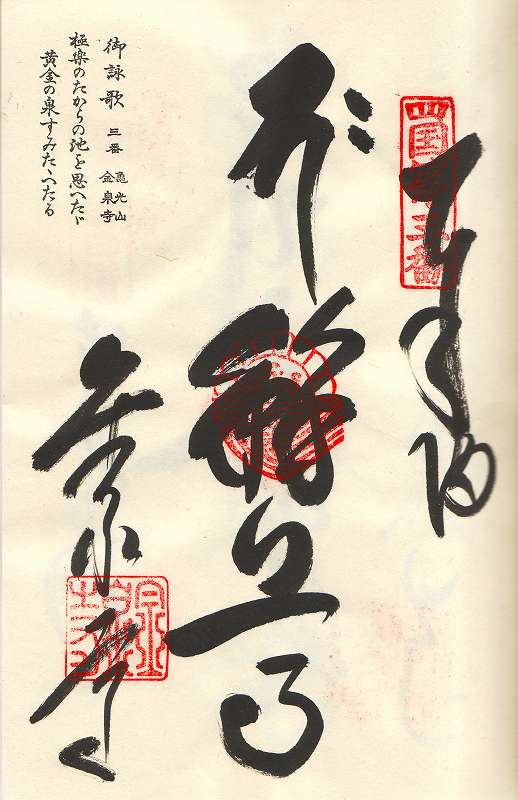 四国第三番
奉納
金泉寺
御詠歌 三番 亀光山 金泉寺
極楽のたからの池を思へたゞ
黄金の泉すみたゝへたる